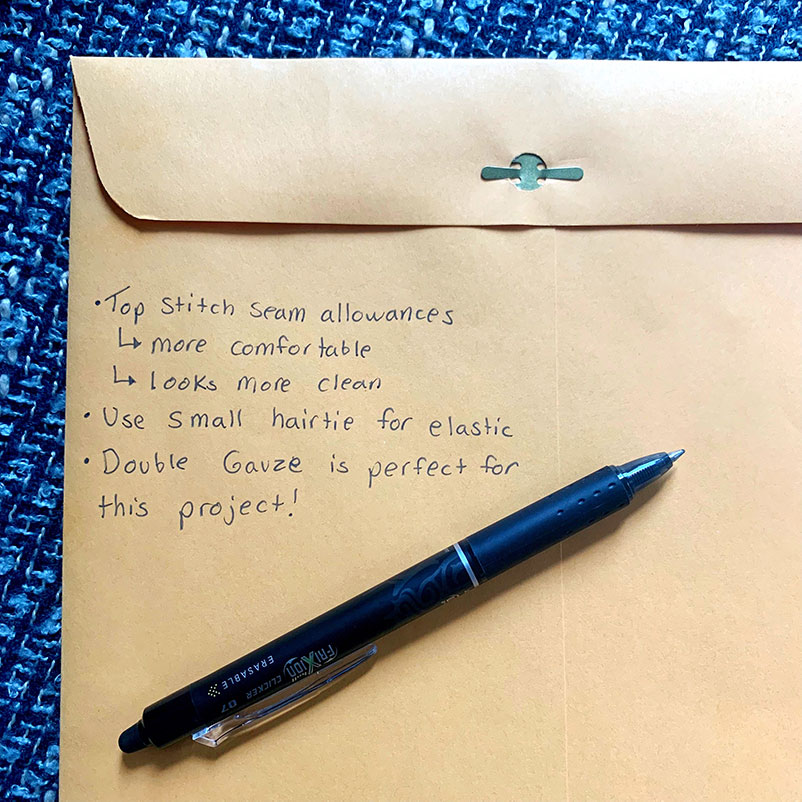 • Top Stitch Seam allowances
↳ more comfortable
↳ looks more clean
• Use small hairtie for elastic
• Double Gauze is perfect for
this project!
FRIXION CLICKER 07
ERASABLE